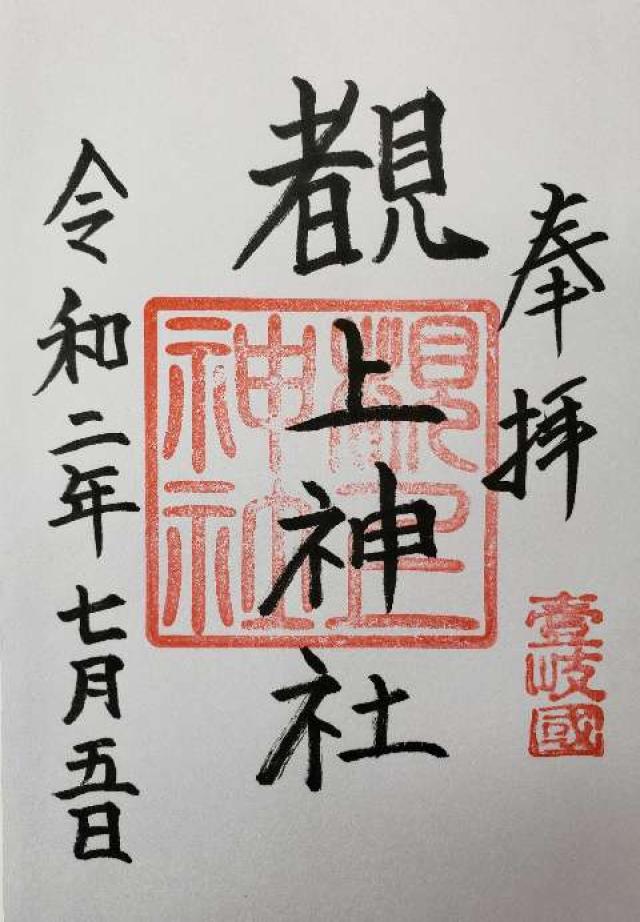 奉拝
壹岐國
覩上神社
神社
令和二年七月五日